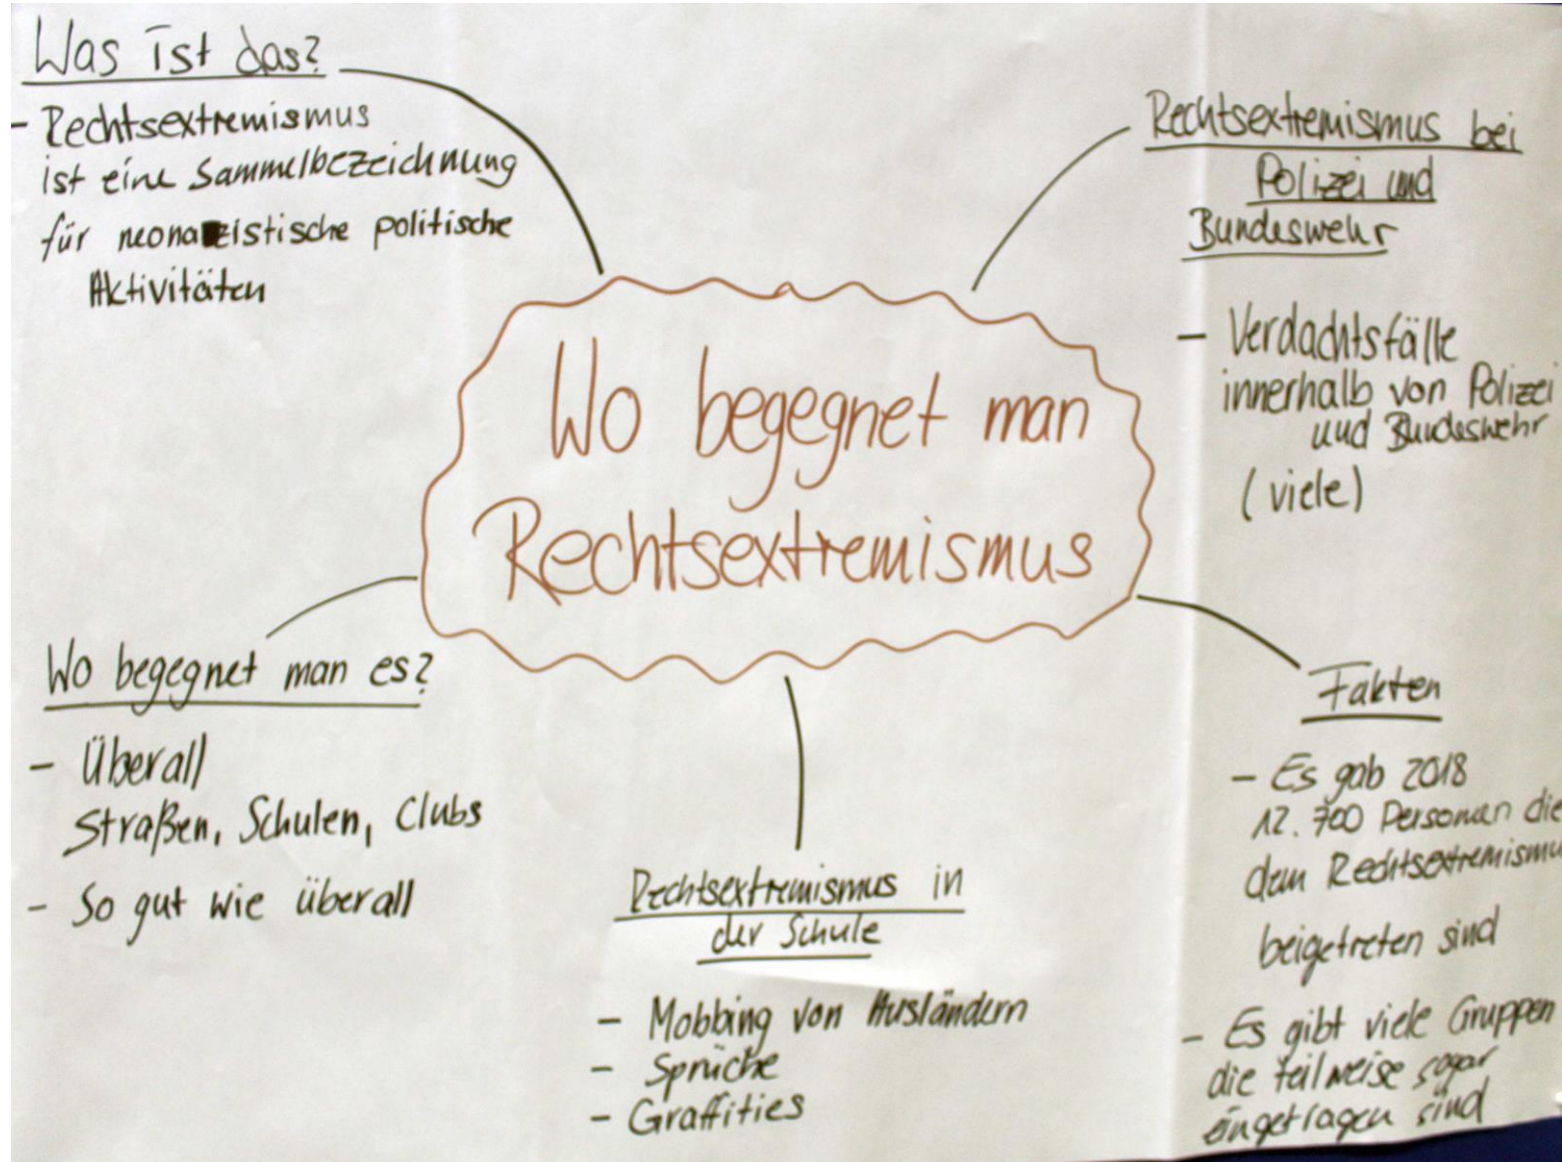 Was ist das?
- Rechtsextremismus
ist eine Sammelbezeichnung
für neonazistische politische
Aktivitäten
Rechtsextremismus bei
Polizei und
Bundeswehr
- Verdachtsfälle
innerhalb von Polizei
und Bundeswehr
(viele)
Wo begegnet man
Rechtsextremismus
Wo begegnet man es?
- Überall
Straßen, Schulen, Clubs
- So gut wie überall
Rechtsextremismus in
der Schule
- Mobbing von Ausländern
- Sprüche
- Graffities
Fakten
- Es gab 2018
12.700 Personen die
dem Rechtsextremismu
beigetreten sind
- Es gibt viele Gruppen
die teilweise sogar
eingetragen sind